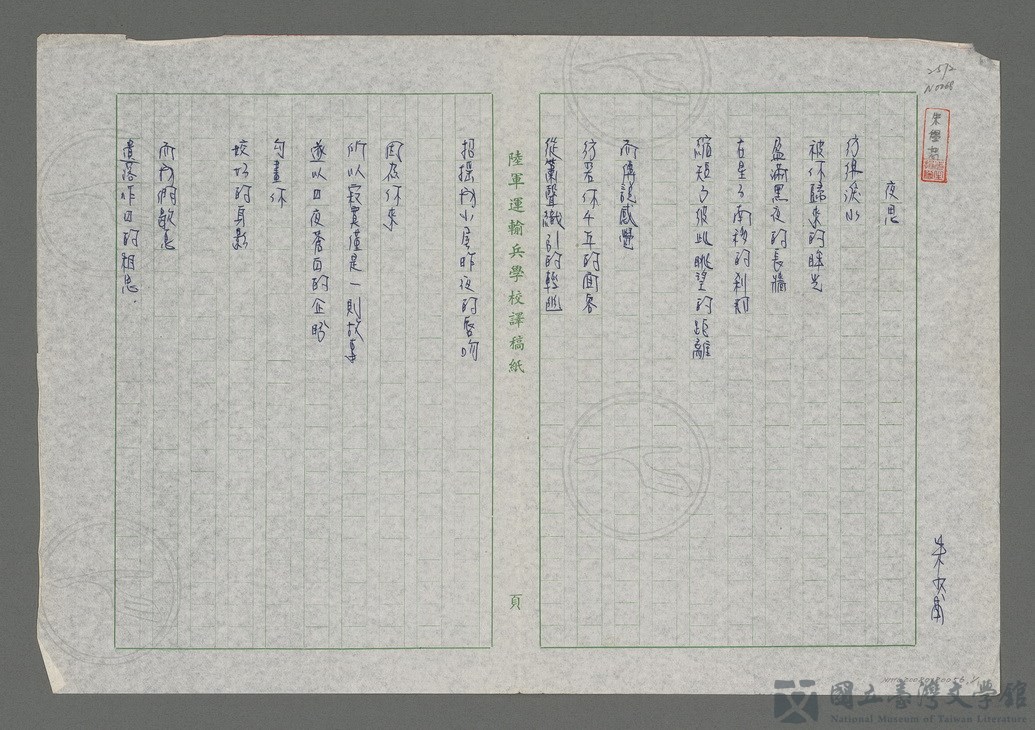 夜思
彷彿淡水
被你歸來的眸光
盈滿黑夜的長牆
在星子南移的剎那
縮短了彼此眺望的距離
而傳說感覺
彷若你千年的面容
從蕭聲織引的輕幽
陸軍運輸兵學校譯稿紙
頁
招搖成小居昨夜的唇吻
因為你來
所以寂寞僅是一則故事
遂以日夜蒼白的企盼
勾畫你
姣好的身影
而我們歇息
遺落昨日的相思.
2512
N0268
朱學恕
國立臺灣文學館
National Museum of Taiwan Literature